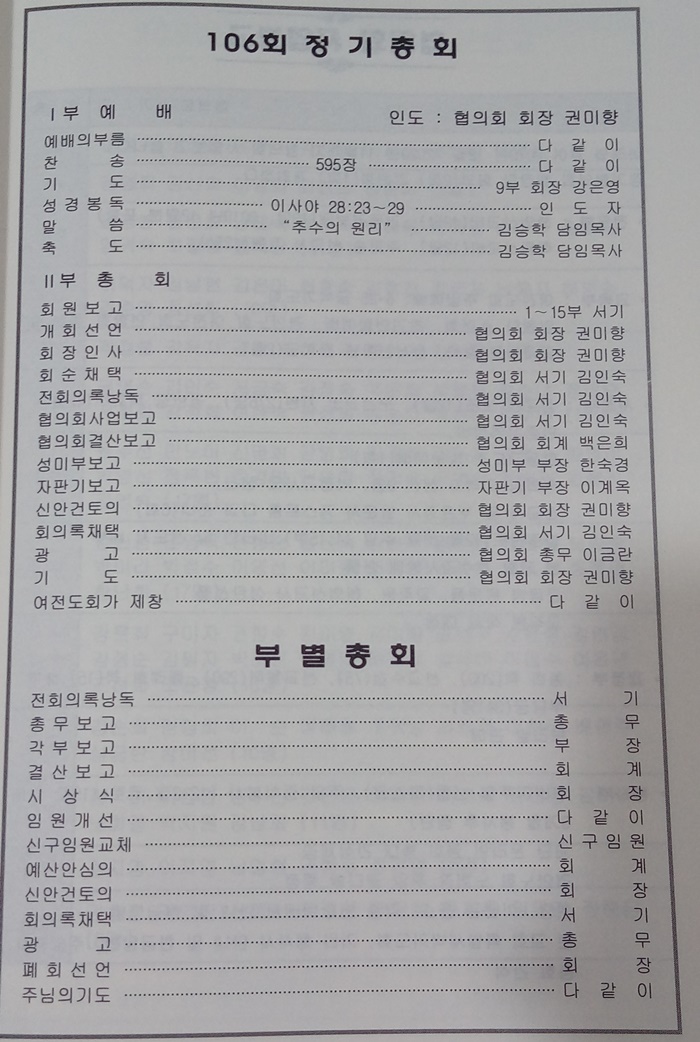 106회 정 기 총 회
Ⅰ부 예 배 인도 : 협의회 회장 권미향
예배의부름 다 같 이
찬 송 595장 다 같 이
기 도 9부 회장 강은영
성경봉독 이사야 28:23~29 인 도 자
말 씀 "추수의 원리" 김승학 담임목사
축 도 김승학 담임목사
Ⅱ부 총 회
회원보고 1~15부 서기
개회선언 협의회 회장 권미향
회장인사 협의회 회장 권미향
회순채택 협의회 서기 김인숙
전회의록낭독 협의회 서기 김인숙
협의회사업보고 협의회 서기 김인숙
협의회결산보고 협의회 회계 백은희
성미부보고 성미부 부장 한숙경
자판기보고 자판기 부장 이계옥
신안건토의 협의회 회장 권미향
회의록채택 협의회 서기 김인숙
광 고 협의회 총무 이금란
기 도 협의회 회장 권미향
여전도회가 제창 다 같 이
부 별 총 회
전회의록낭독 서 기
총무보고 총 무
각부보고 부 장
결산보고 회 계
시 상 식 회 장
임원개선 다 같 이
신구임원교체 신구임원
예산안심의 회 계
신안건토의 회 장
회의록채택 서 기
광 고 총 무
폐회선언 회 장
주님의기도 다 같 이